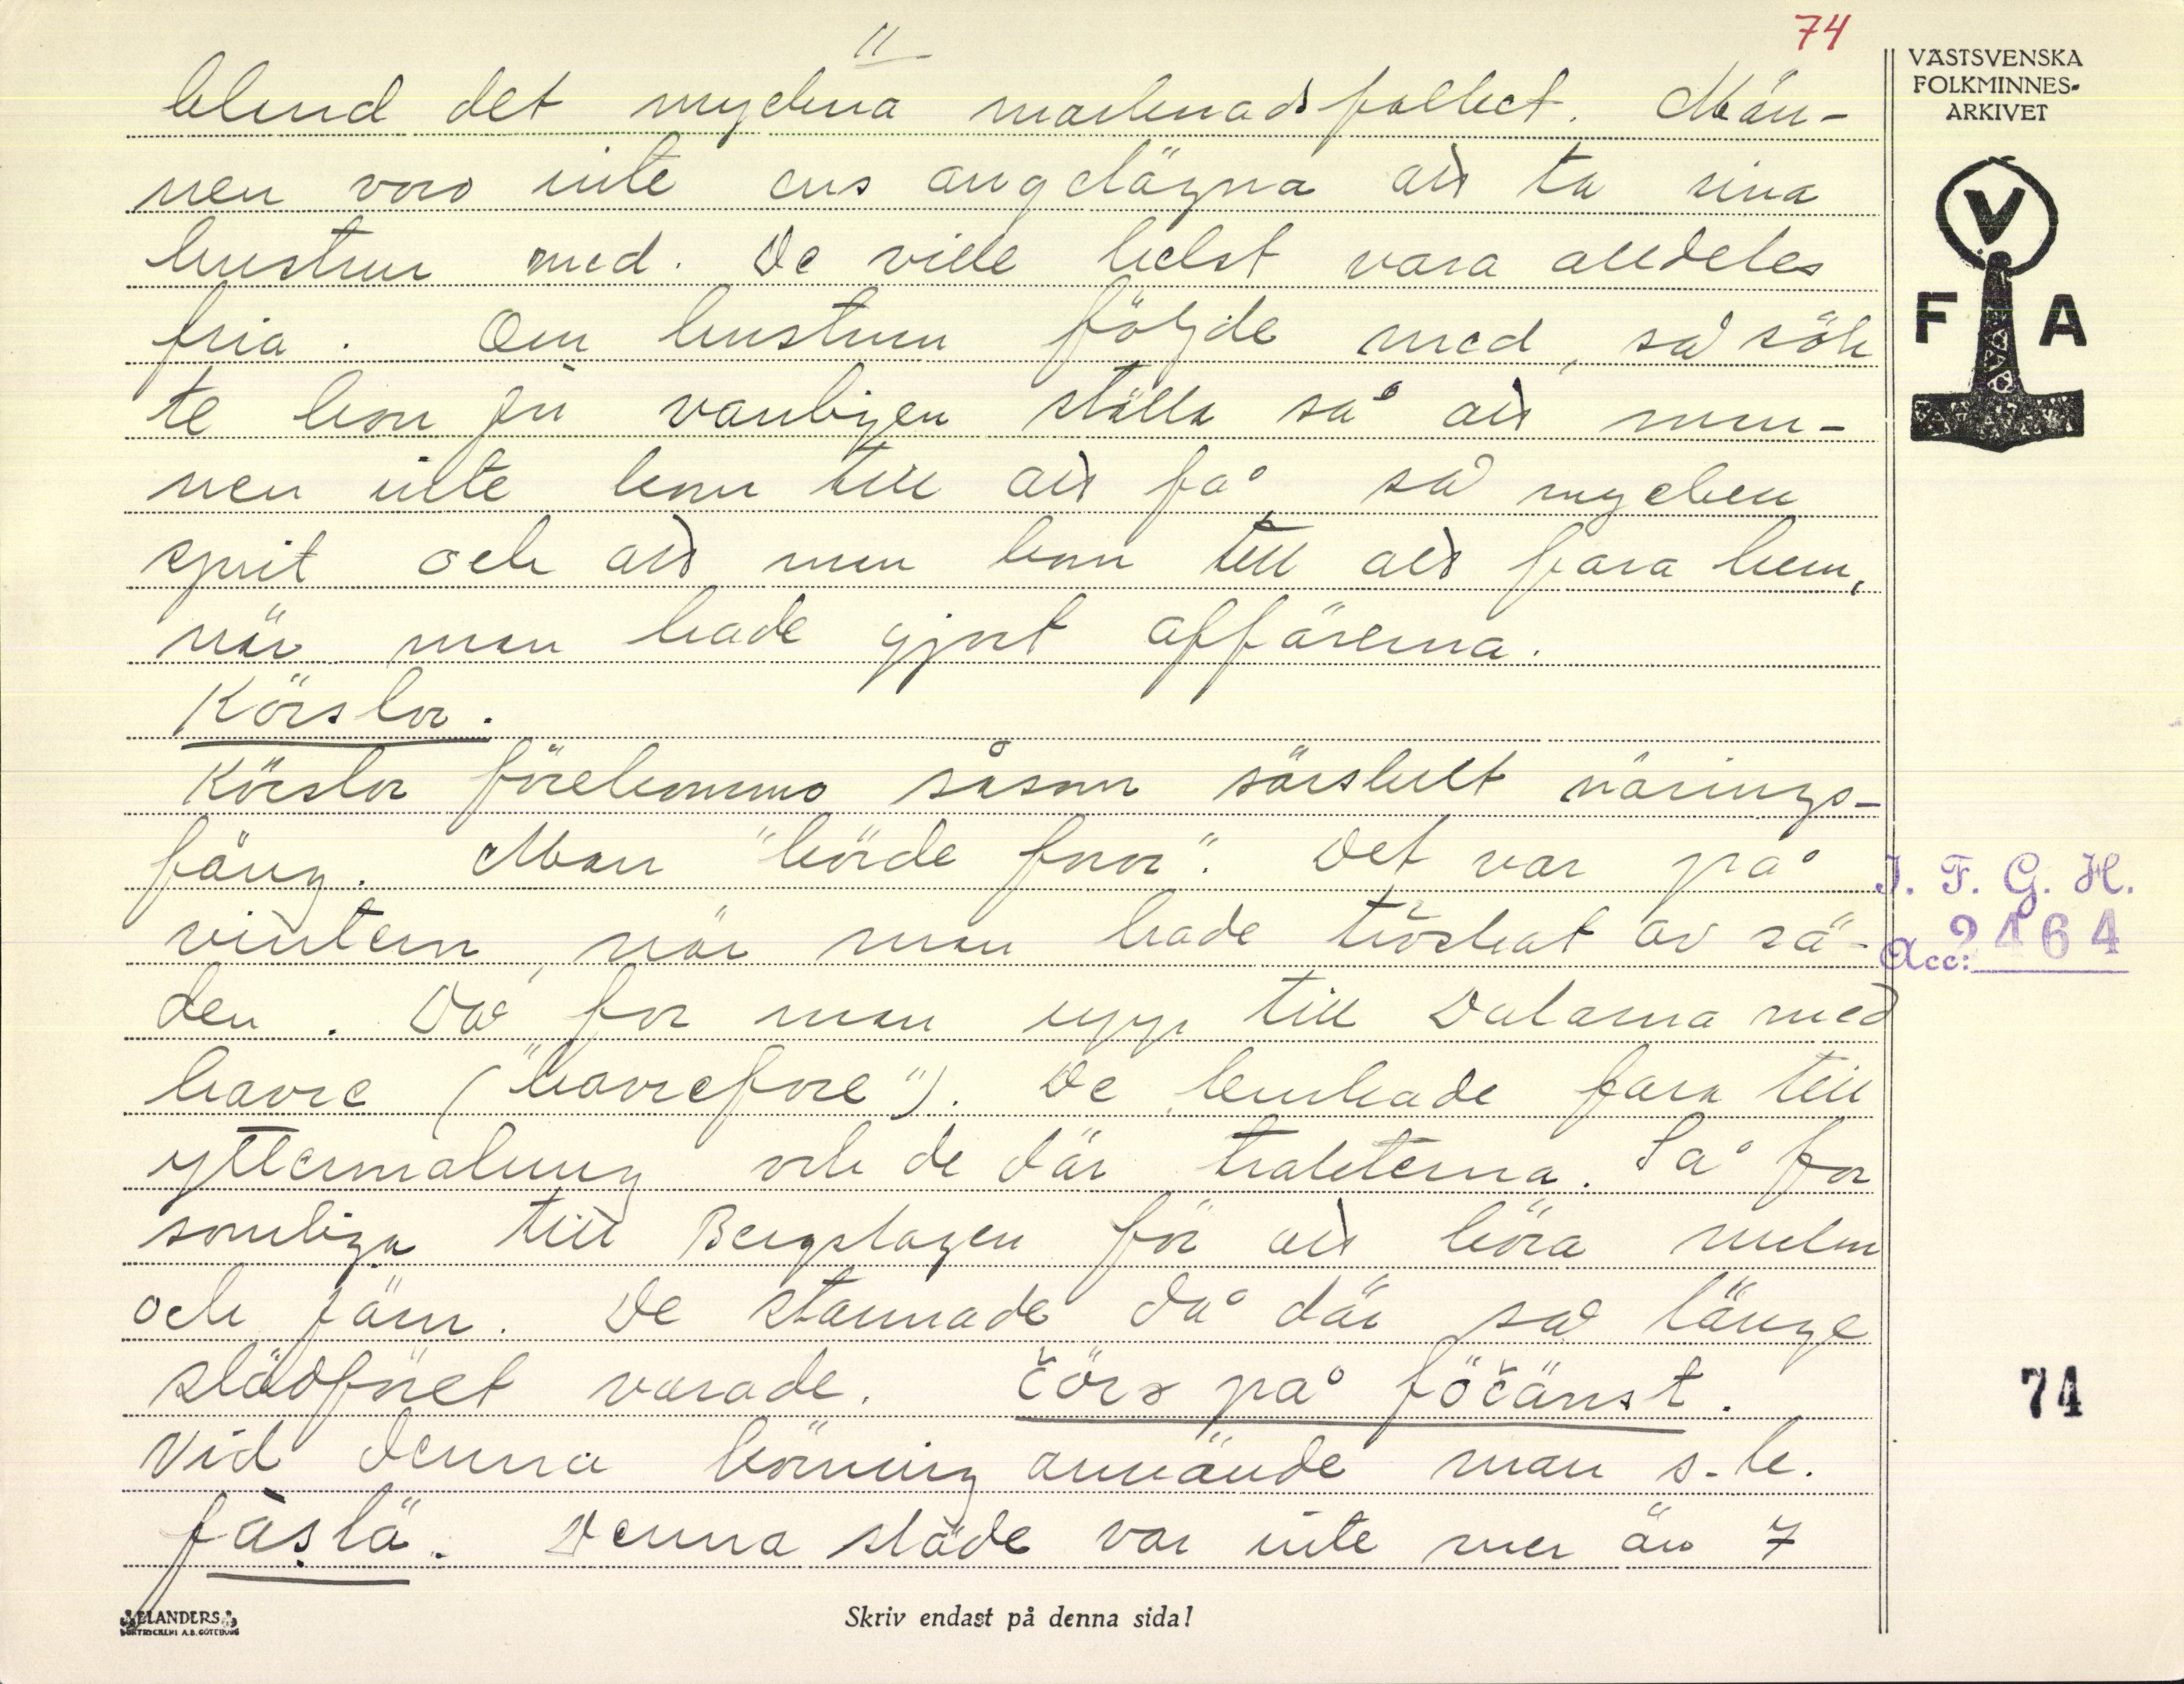 11
74
bland det myckna marknadsfolket. Män-
nen voro inte ens angelägna att ta sina
hustrur med. De ville helst vara alldeles
fria. Om hustrun följde med, så sök
te hon ju vanligen ställa så att man-
nen inte kom till att få så mycken
sprit och att man kom till att fara hem,
när man hade gjort affärerna.
Körslor.
Körslor förekommo såsom särskilt närings-
fång. Man "körde foror". Det var på
vintern, när man hade tröskat av sä-
den. Då for man upp till Dalarna med
havre ("havrefore"). De brukade fara till
yttermalung och de där trakterna. Så for
somliga till Bergslagen för att köra malm
och järn. De stannade då där så länge
slädföret varade. čörs på föčänst.
Vid denna körning använde man s.k.
fäslä. Denna släde var inte mer än 7
VÄSTSVENSKA
FOLKMINNES-
ARKIVET
V
F A
I. F. G. H.
Acc: 2464
74
ELANDERS
BOKTRYCKERI A.B. GÖTEBORG
Skriv endast på denna sida!